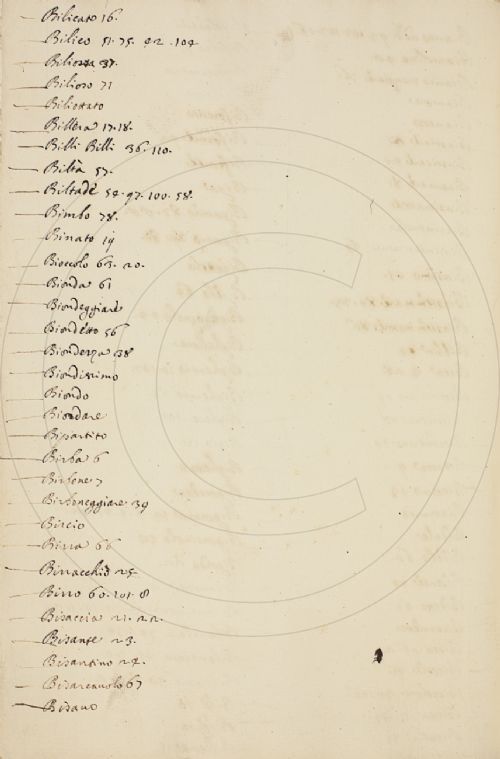 Bilicato 16.
Bilico 51. 75. 42. 104
Biliorsa 37.
Bilioso 71
Biliottato
Billera 17. 18.
Billi Billi 36. 110.
Biltà 57.
Biltade 54. 97. 100. 58.
Bimbo 78.
Binato 19
Bioccolo 63. 20.
Bionda 61
Biondeggiare
Biondetto 56
Biondezza 38
Biondissimo
Biondo
Biondare
Bipartito
Birba 6
Birbone 7
Birboneggiare 39
Bircio
Birra 66
Birracchio 25.
Birro 60. 101. 8
Bisaccia 21. 22.
Bisante 23.
Bisantino 24.
Bisarcavolo 67
Bisavo